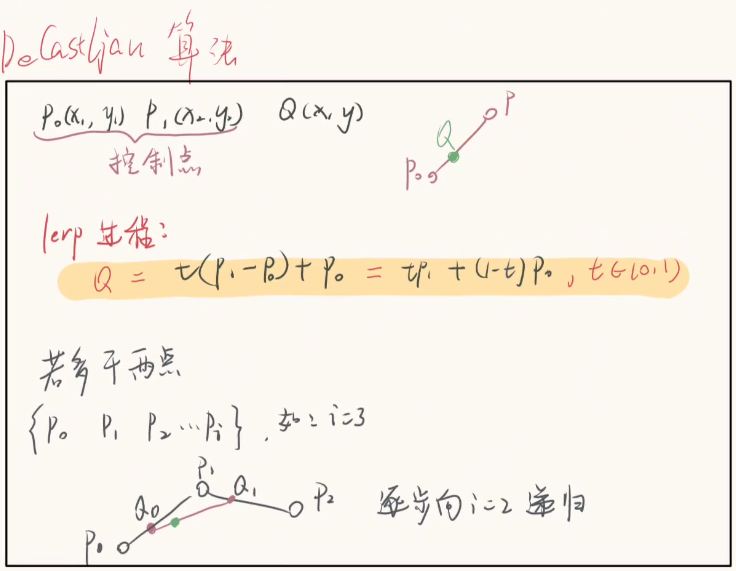 DeCastljau 算法
P₀(x₁, y₁) P₁(x₂, y₂) Q(x, y)
控制点
P
Q
P₀
lerp 过程:
Q = t(P₁-P₀)+P₀ = tP₁ + (1-t)P₀, t∈(0,1)
若多于两点
{P₀ P₁ P₂…Pᵢ}, 如: i=3
P₁
Q₀ Q₁
P₂
P₀
逐步向 i=2 递归